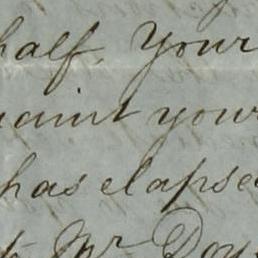 half, Your
aint your
has elapse
Mr Doy